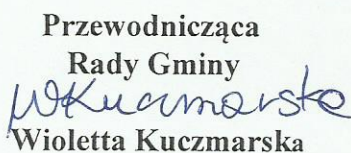 Przewodnicząca
Rady Gminy
WKuczmarska
Wioletta Kuczmarska